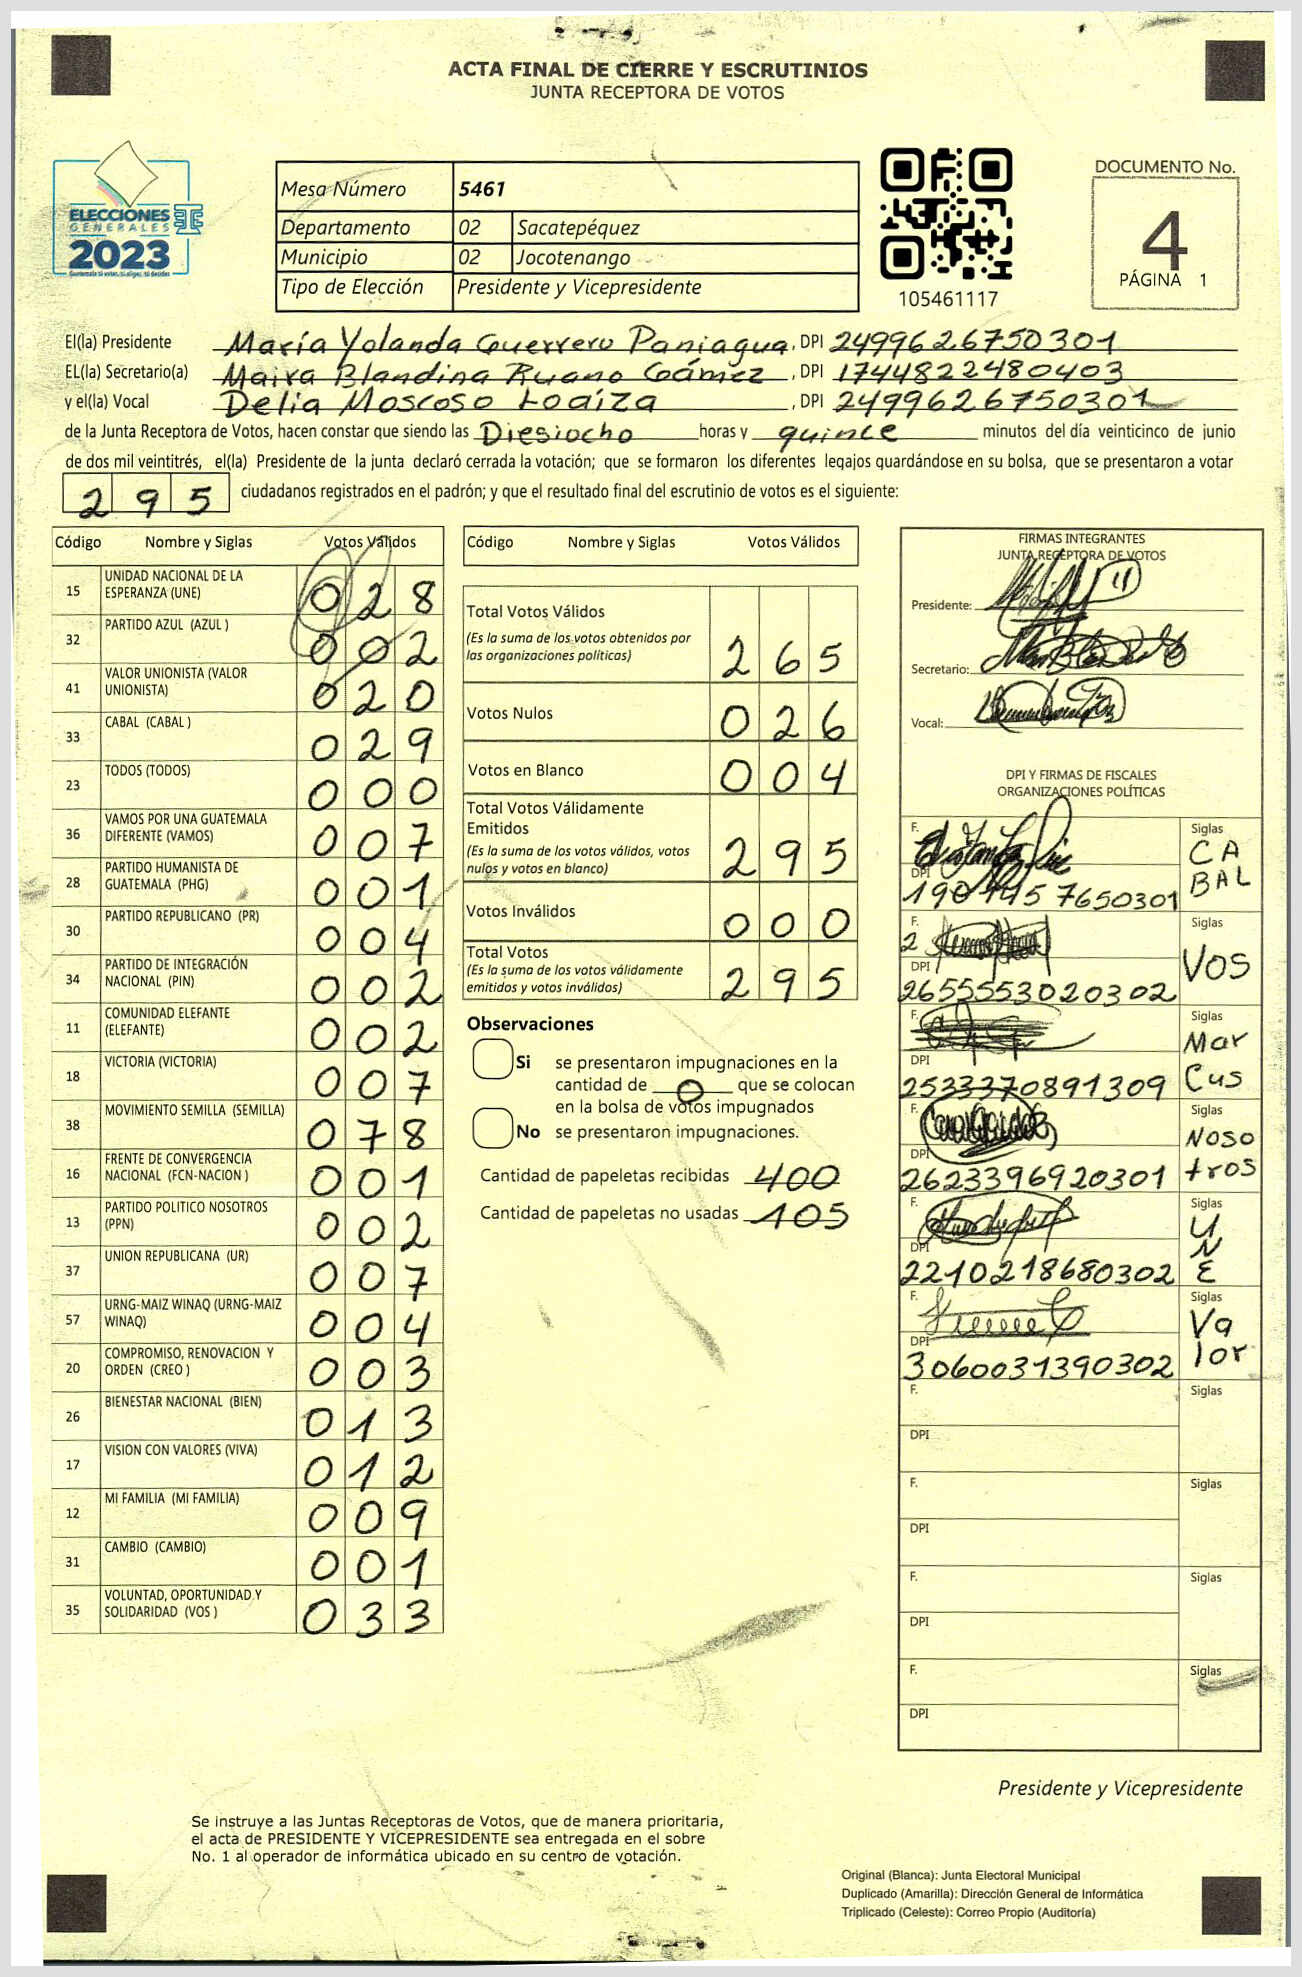 ACTA FINAL DE CIERRE Y ESCRUTINIOS
JUNTA RECEPTORA DE VOTOS
ELECCIONES
GENERALES
2023
Guatemala tú votas, tú eliges, tú decides
Mesa Número 5461
Departamento 02 Sacatepéquez
Municipio 02 Jocotenango
Tipo de Elección Presidente y Vicepresidente
105461117
DOCUMENTO No.
4
PÁGINA 1
El(la) Presidente María Yolanda Guerrero Paniagua, DPI 2499626750301
EL(la) Secretario(a) Maira Blandina Ruano Gámez, DPI 1744822480403
y el(la) Vocal Delia Moscoso Loaiza, DPI 2499626750301
de la Junta Receptora de Votos, hacen constar que siendo las Diesiocho horas y quince minutos del día veinticinco de junio
de dos mil veintitrés, el(la) Presidente de la junta declaró cerrada la votación; que se formaron los diferentes legajos guardándose en su bolsa, que se presentaron a votar
295 ciudadanos registrados en el padrón; y que el resultado final del escrutinio de votos es el siguiente:
Código Nombre y Siglas Votos Válidos
15 UNIDAD NACIONAL DE LA ESPERANZA (UNE) 028
32 PARTIDO AZUL (AZUL ) 002
41 VALOR UNIONISTA (VALOR UNIONISTA) 020
33 CABAL (CABAL ) 029
23 TODOS (TODOS) 000
36 VAMOS POR UNA GUATEMALA DIFERENTE (VAMOS) 007
28 PARTIDO HUMANISTA DE GUATEMALA (PHG) 001
30 PARTIDO REPUBLICANO (PR) 004
34 PARTIDO DE INTEGRACIÓN NACIONAL (PIN) 002
11 COMUNIDAD ELEFANTE (ELEFANTE) 002
18 VICTORIA (VICTORIA) 007
38 MOVIMIENTO SEMILLA (SEMILLA) 078
16 FRENTE DE CONVERGENCIA NACIONAL (FCN-NACION ) 001
13 PARTIDO POLITICO NOSOTROS (PPN) 002
37 UNION REPUBLICANA (UR) 007
57 URNG-MAIZ WINAQ (URNG-MAIZ WINAQ) 004
20 COMPROMISO, RENOVACION Y ORDEN (CREO ) 003
26 BIENESTAR NACIONAL (BIEN) 013
17 VISION CON VALORES (VIVA) 012
12 MI FAMILIA (MI FAMILIA) 009
31 CAMBIO (CAMBIO) 001
35 VOLUNTAD, OPORTUNIDAD Y SOLIDARIDAD (VOS ) 033
Código Nombre y Siglas Votos Válidos
Total Votos Válidos
(Es la suma de los votos obtenidos por
las organizaciones políticas) 265
Votos Nulos 026
Votos en Blanco 004
Total Votos Válidamente
Emitidos
(Es la suma de los votos válidos, votos
nulos y votos en blanco) 295
Votos Inválidos 000
Total Votos
(Es la suma de los votos válidamente
emitidos y votos inválidos) 295
Observaciones
Si se presentaron impugnaciones en la
cantidad de 0 que se colocan
en la bolsa de votos impugnados
No se presentaron impugnaciones.
Cantidad de papeletas recibidas 400
Cantidad de papeletas no usadas 105
FIRMAS INTEGRANTES
JUNTA RECEPTORA DE VOTOS
Presidente:
Secretario:
Vocal:
DPI Y FIRMAS DE FISCALES
ORGANIZACIONES POLÍTICAS
F. Siglas CA
BAL
DPI
F. Siglas VOS
DPI 2655553020302
F. Siglas Mar
cus
DPI 2533370891309
F. Siglas Noso
tros
DPI 2623396920301
F. Siglas U
N
E
DPI 2210218680302
F. Siglas Va
lor
DPI 3060031390302
F. Siglas
DPI
F. Siglas
DPI
F. Siglas
DPI
F. Siglas
DPI
Presidente y Vicepresidente
Se instruye a las Juntas Receptoras de Votos, que de manera prioritaria,
el acta de PRESIDENTE Y VICEPRESIDENTE sea entregada en el sobre
No. 1 al operador de informática ubicado en su centro de votación.
Original (Blanca): Junta Electoral Municipal
Duplicado (Amarilla): Dirección General de Informática
Triplicado (Celeste): Correo Propio (Auditoría)